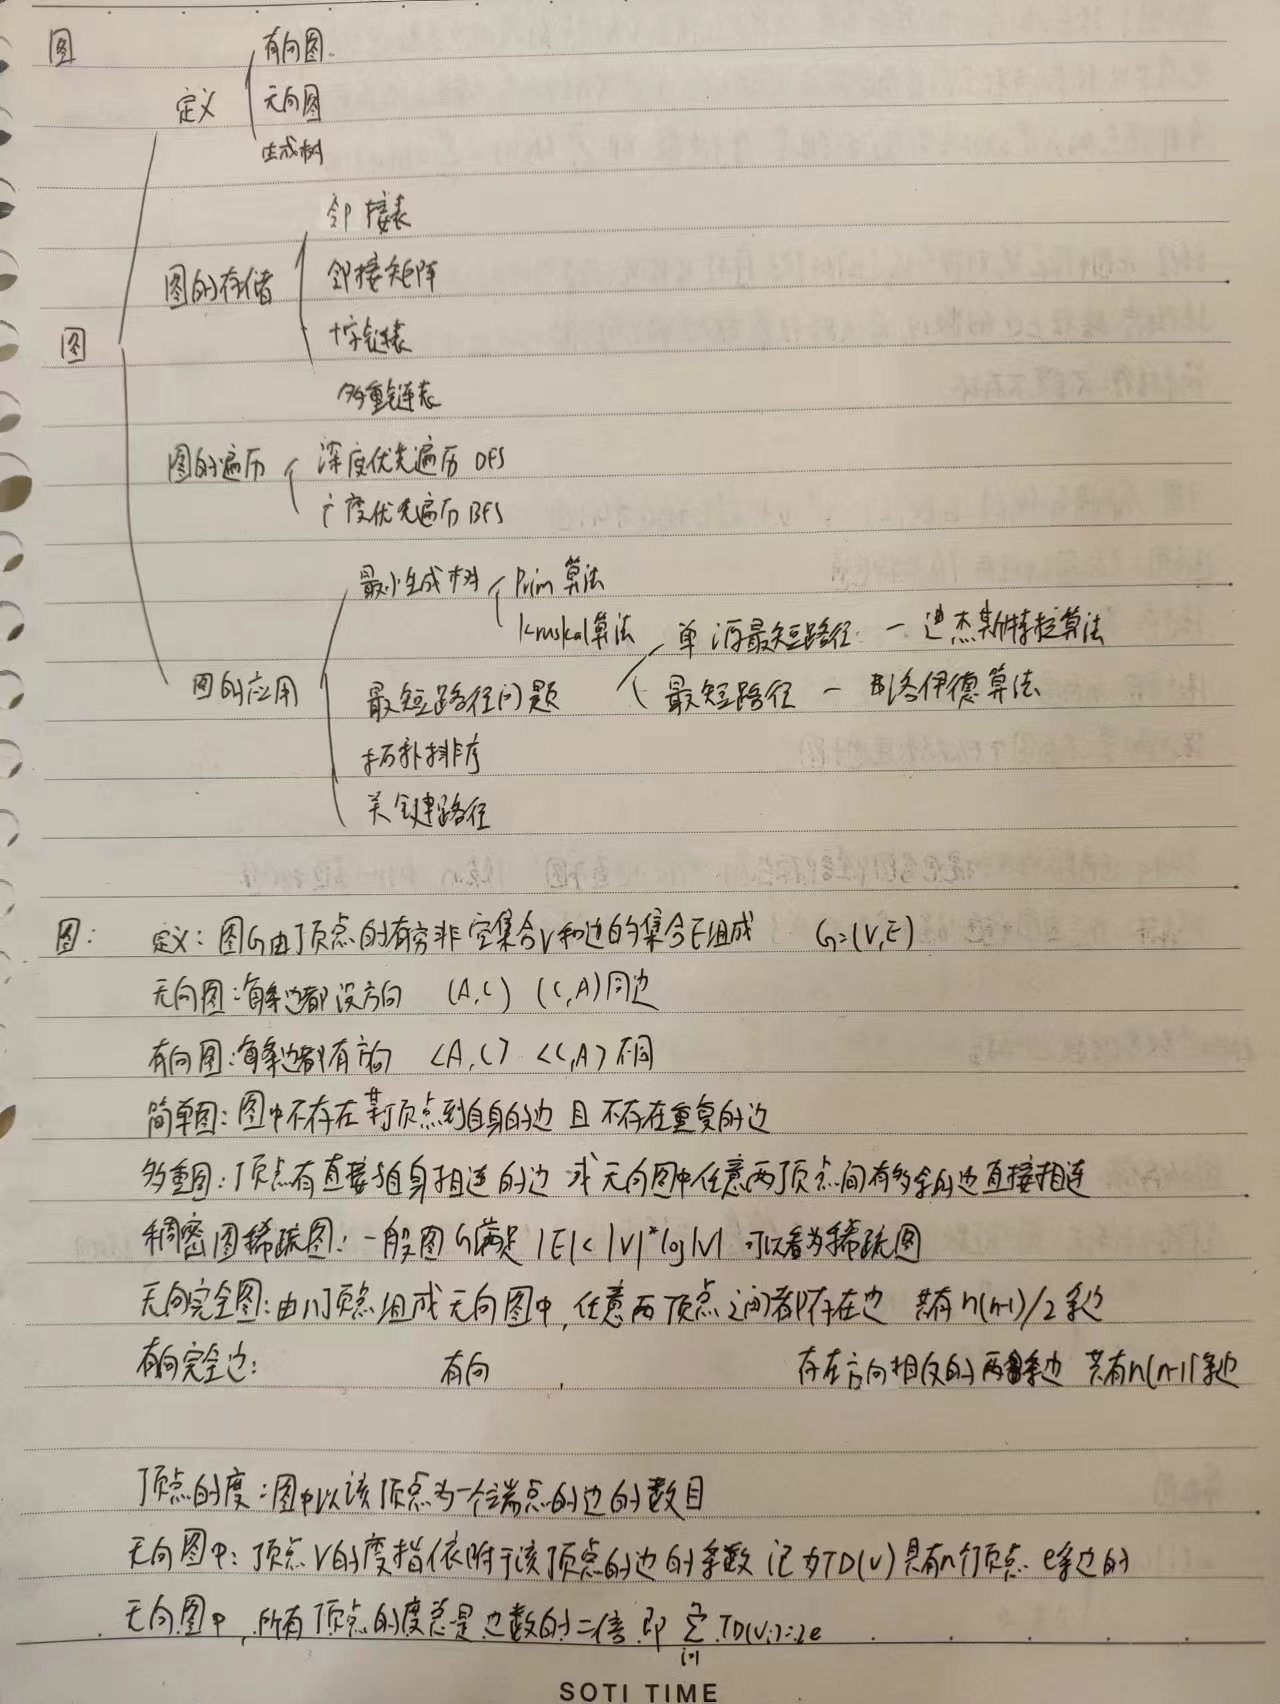 图
有向图
定义
无向图
生成树
邻接表
图的存储
邻接矩阵
十字链表
图
多重链表
图的遍历
深度优先遍历 DFS
广度优先遍历 BFS
最小生成树
Prim 算法
Kruskal 算法
单源最短路径 — 迪杰斯特拉算法
图的应用
最短路径问题
最短路径 — 弗洛伊德算法
拓扑排序
关键路径
图: 定义: 图G由顶点的有穷非空集合V和边的集合E组成 G=(V,E)
无向图: 每条边都没方向 (A,C) (C,A)同边
有向图: 每条边都有方向 <A,C> <C,A>不同
简单图: 图中不存在某顶点到自身的边 且 不存在重复的边
多重图: 顶点有直接与自身相连的边 或 无向图中任意两顶点间有多余的边直接相连
稠密图稀疏图: 一般图G满足 |E|<|V|*log|V| 可以看为稀疏图
无向完全图: 由n顶点组成无向图中, 任意两顶点之间都存在边 共有n(n-1)/2条边
有向完全边: 有向 , 存在方向相反的两条边 共有n(n-1)条边
顶点的度: 图中以该顶点为一个端点的边的数目
无向图中: 顶点V的度指依附于该顶点的边的条数 记为TD(v) 具有n个顶点 e条边的
无向图中, 所有顶点的度总是边数的二倍 即 ∑TD(vi)=2e
i=1
SOTI TIME